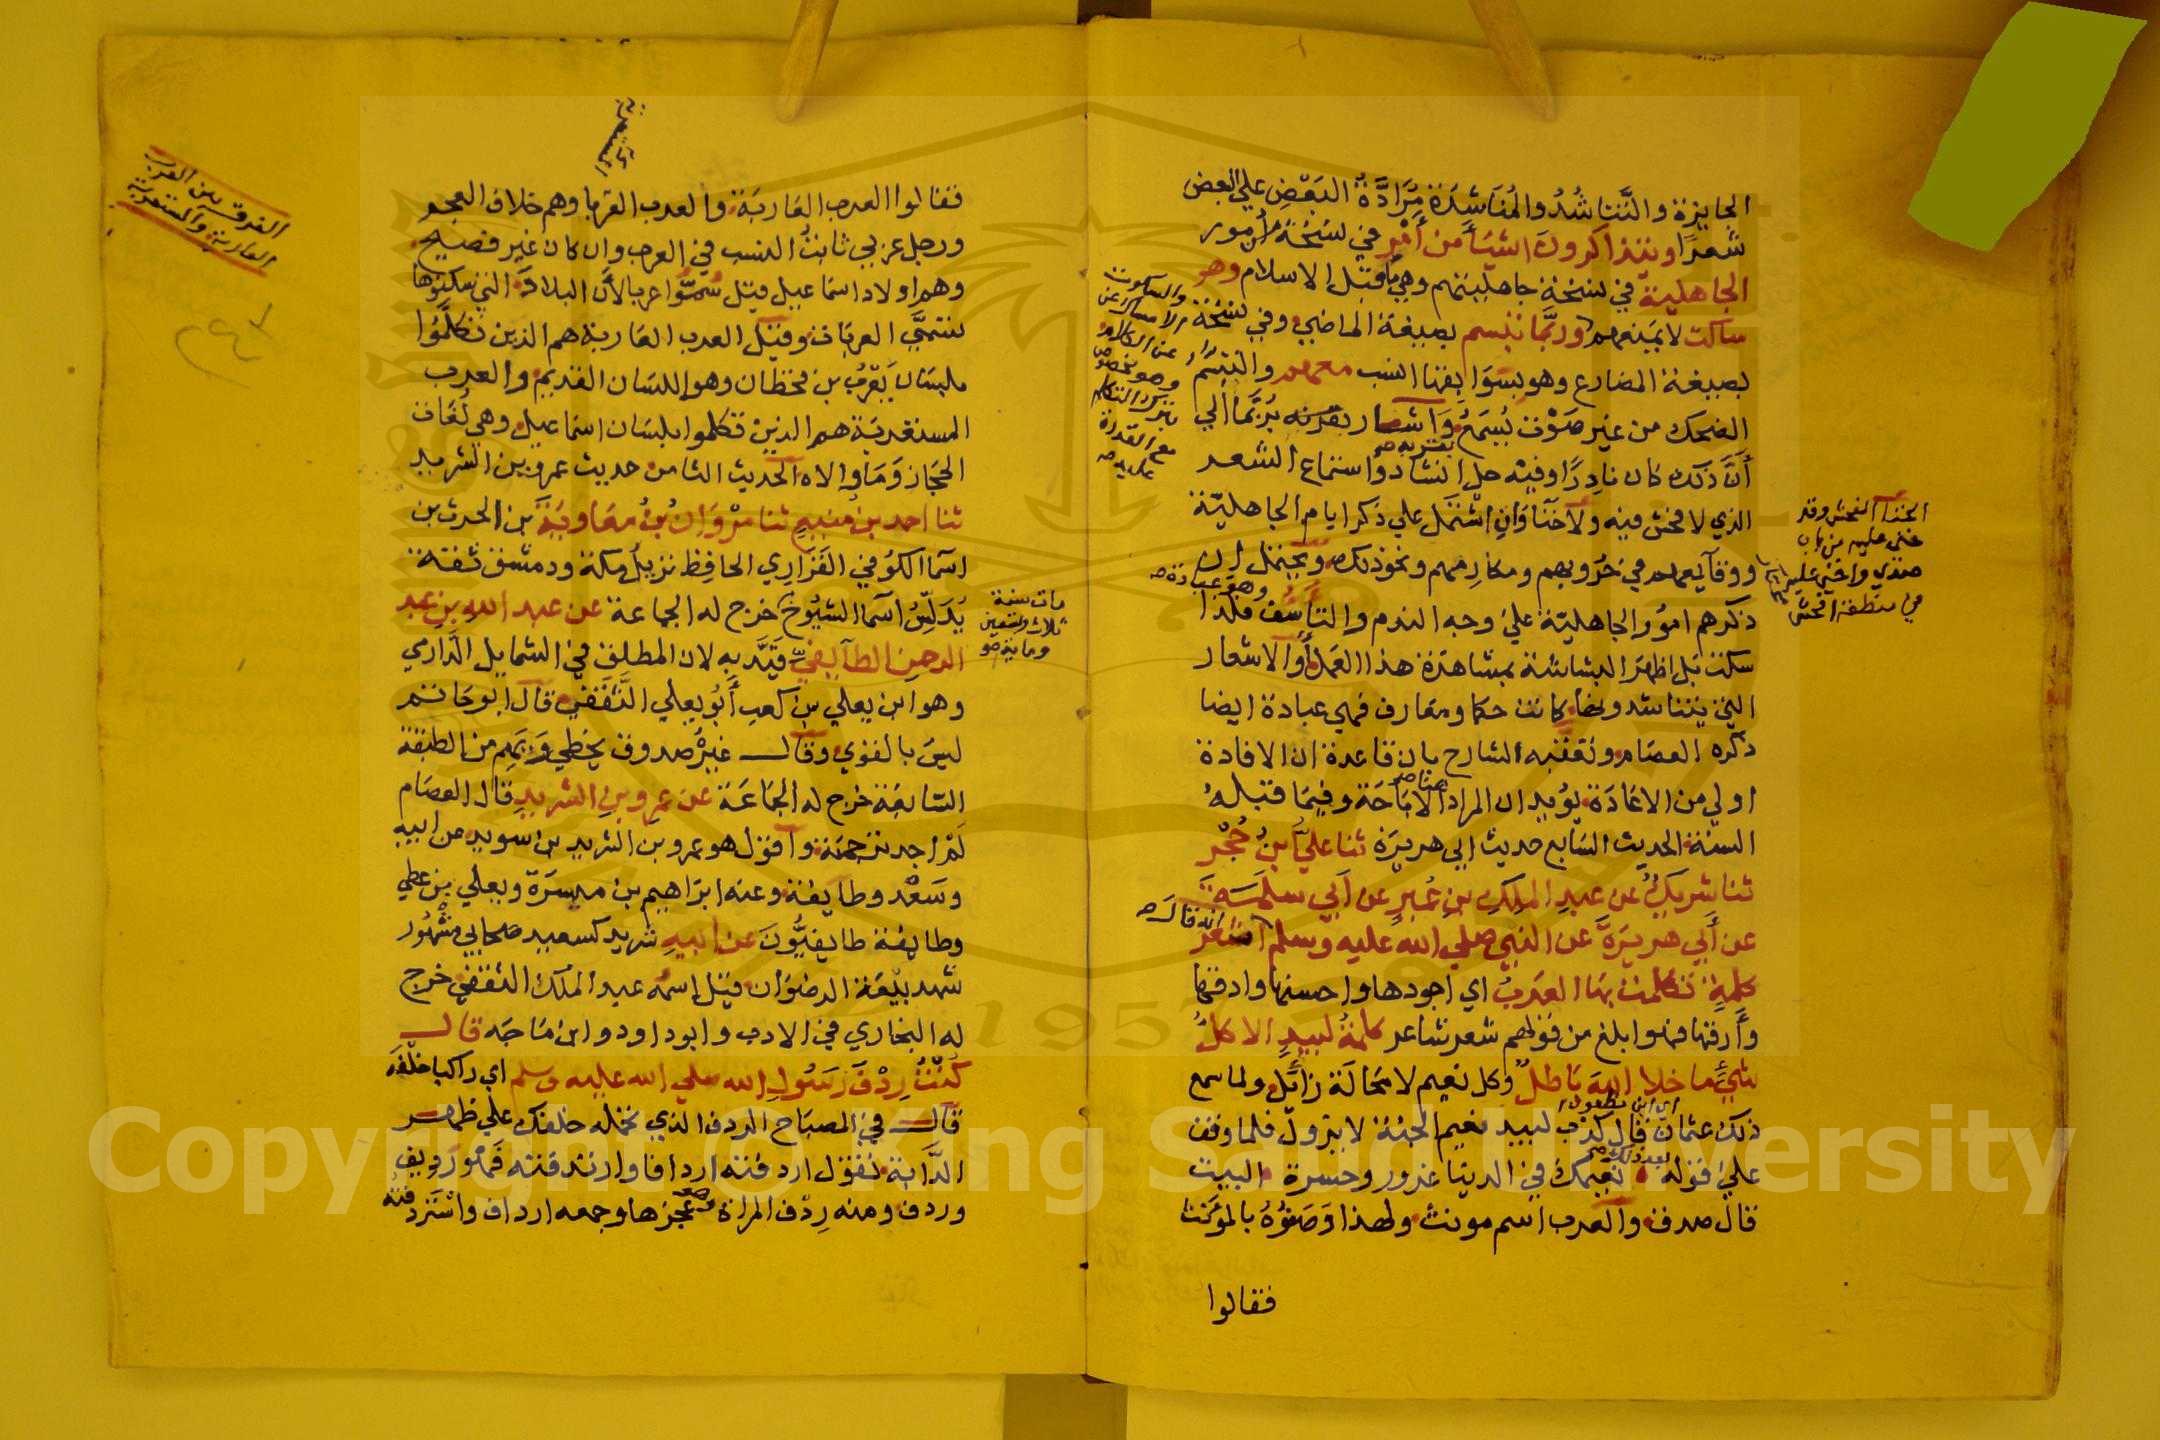 الجايزة والتناشد والمناشدة مرادة البعض علي البعض
شعرا ويتذاكرون اشيأ من أمر في نسخة من أمور
الجاهلية في نسخة جاهليتهم وهي ما قبل الاسلام وهو
ساكت لا يمنعهم وربما تبسم بصيغة الماضي وفي نسخة
بصيغة المضارع وهو بسوابقنا انسب معهم والتبسم
الضحك من غير صوت يسمع وأشار بقرنه بربما الي
أن ذلك كان نادرا وفيه حل انشاد واستماع الشعر
الذي لا فحش فيه ولا خنا وان اشتمل علي ذكر ايام الجاهلية
ووقايعهم في حروبهم ومكارمهم ونحو ذلك ويحتمل ان
ذكرهم امور الجاهلية علي وجه الندم والتأسف فلذا
سكت بل اظهر البشاشة بمشاهدة هذا العمل أو الاشعار
التي يتناشدونها كانت حكما ومعارف فهي عبادة ايضا
ذكره العصام وتعقبه الشارح بان قاعدة ان الافادة
اولي من الاعادة يؤيد ان المراد الاباحة وفيما قبله
السنة الحديث السابع حديث ابي هريرة ثنا علي بن حجر
ثنا شريك عن عبد الملك بن عمير عن أبي سلمة
عن أبي هريرة عن النبي صلي الله عليه وسلم اشعر
كلمة تكلمت بها العرب اي اجودها واحسنها وادقها
وأرقها فهو ابلغ من قولهم شعر شاعر كلمة لبيد الا كل
شيئ ما خلا الله باطل وكل نعيم لا محالة زائل ولما سمع
ذلك عثمان قال كذب لبيد نعيم الجنة لا يزول فلما وقف
علي قوله نعيمك في الدنيا غرور وحسرة البيت
قال صدق والعرب اسم مونث ولهذا وصفوه بالمؤنث
فقالوا
وهو عبادة صح
انه قال صح
اي ابن مظعون
بعد ذلك
والساكت
عن الكلام
بترك التكلم
مع القدرة
عليه صح
الخنا الفحش وقد
خني عليه من باب
صدي واخني عليه
في منطقه افحش
فقالوا العرب العاربة والعرب العربا وهم خلاف العجم
ورجل عربي ثابت النسب في العرب وان كان غير فصيح
وهم اولاد اسماعيل قيل سموا عربا لأن البلاد التي سكنوها
تسمي العربات وقيل العرب العاربة هم الذين تكلموا
بلسان يعرب بن قحطان وهو اللسان القديم والعرب
المستعربة هم الذين تكلموا بلسان اسماعيل وهي لغات
الحجاز وما والاه الحديث الثامن حديث عمرو بن الشريد
ثنا احمد بن منيع ثنا مروان بن معاوية بن الحرث بن
اسما الكوفي الفزاري الحافظ نزيل مكة ودمشق ثقة
يدلس اسما الشيوخ خرج له الجماعة عن عبد الله بن عبد
الرحمن الطآيفي قيد به لان المطلق في الشمايل الدارمي
وهو ابن يعلي بن كعب أبو يعلي الثقفي قال ابو حاتم
ليس بالقوي وقال غيره صدوق يخطي ويهم من الطبقة
السابعة خرج له الجماعة عن عمرو بن الشريد قال العصام
لم اجد ترجمته وآقول هو عمرو بن الشريد بن سويد عن ابيه
وسعد وطايفة وعنه ابراهيم بن ميسرة ويعلي بن عطي
وطايفة طايفيون عن ابيه شريد كسعيد صحابي مشهور
شهد بيعة الرضوان قيل اسمه عبد الملك الثقفي خرج
له البخاري في الادب وابو داود وابن ماجه قال
كنت ردف رسول الله صلي الله عليه وسلم اي راكبا خلفه
قال في المصباح الردف الذي تحمله خلفك علي ظهر
الدابة تقول اردفته اردافا وارتدفته فهو رديف
وردف ومنه ردف المراة وهو عجزها وجمعه ارداف واستردفته
مات سنة
ثلاث وتسعين
وماية صح
الفرق بين العرب
العاربة والمستعربة
Copyright © King Saud University
1957